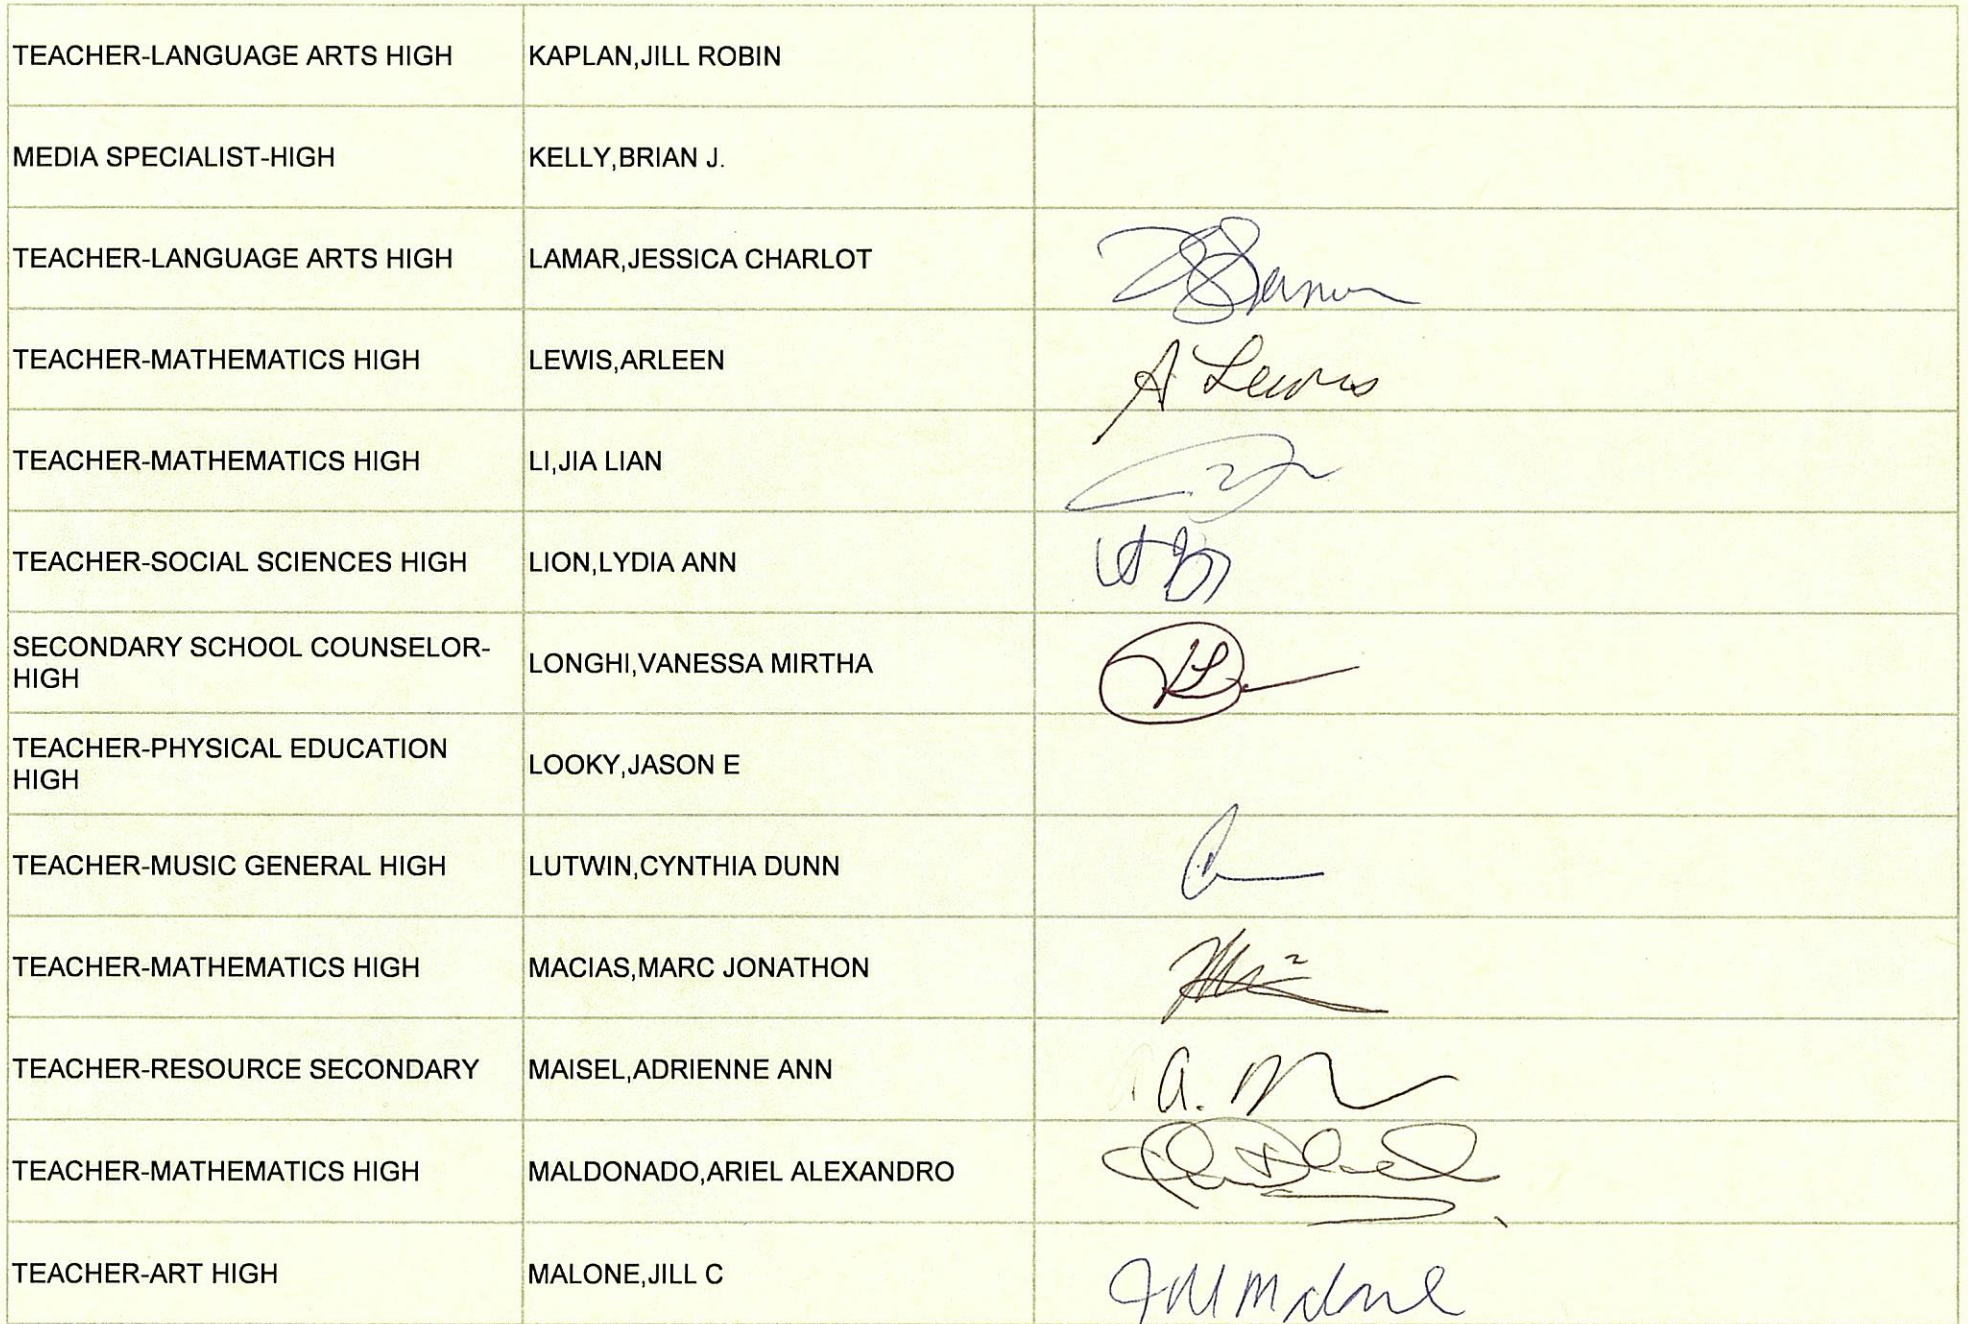 TEACHER-LANGUAGE ARTS HIGH KAPLAN,JILL ROBIN
MEDIA SPECIALIST-HIGH KELLY,BRIAN J.
TEACHER-LANGUAGE ARTS HIGH LAMAR,JESSICA CHARLOT
TEACHER-MATHEMATICS HIGH LEWIS,ARLEEN A Lewis
TEACHER-MATHEMATICS HIGH LI,JIA LIAN
TEACHER-SOCIAL SCIENCES HIGH LION,LYDIA ANN
SECONDARY SCHOOL COUNSELOR-
HIGH LONGHI,VANESSA MIRTHA
TEACHER-PHYSICAL EDUCATION
HIGH LOOKY,JASON E
TEACHER-MUSIC GENERAL HIGH LUTWIN,CYNTHIA DUNN
TEACHER-MATHEMATICS HIGH MACIAS,MARC JONATHON
TEACHER-RESOURCE SECONDARY MAISEL,ADRIENNE ANN a. M
TEACHER-MATHEMATICS HIGH MALDONADO,ARIEL ALEXANDRO
TEACHER-ART HIGH MALONE,JILL C Jill Malone